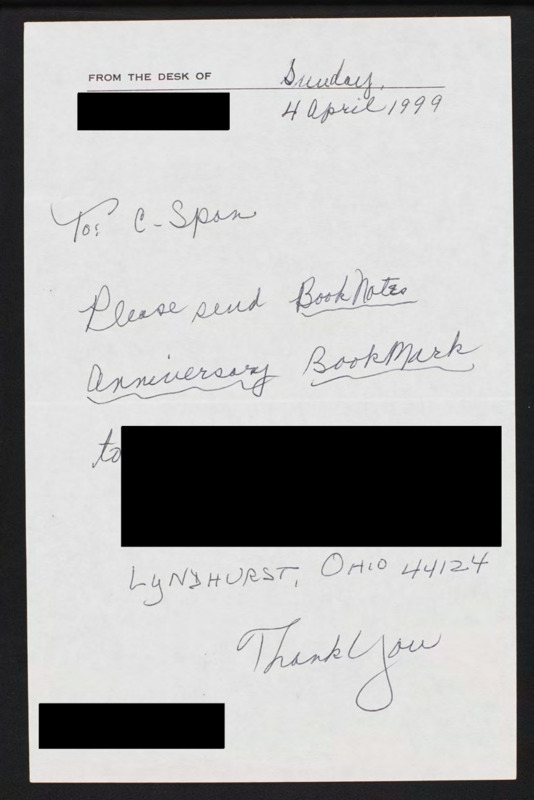 FROM THE DESK OF
Sunday,
4 April 1999
To: C-Span
Please send BookNotes
Anniversary BookMark
to
LyNDHURST, OHIO 44124
Thank You